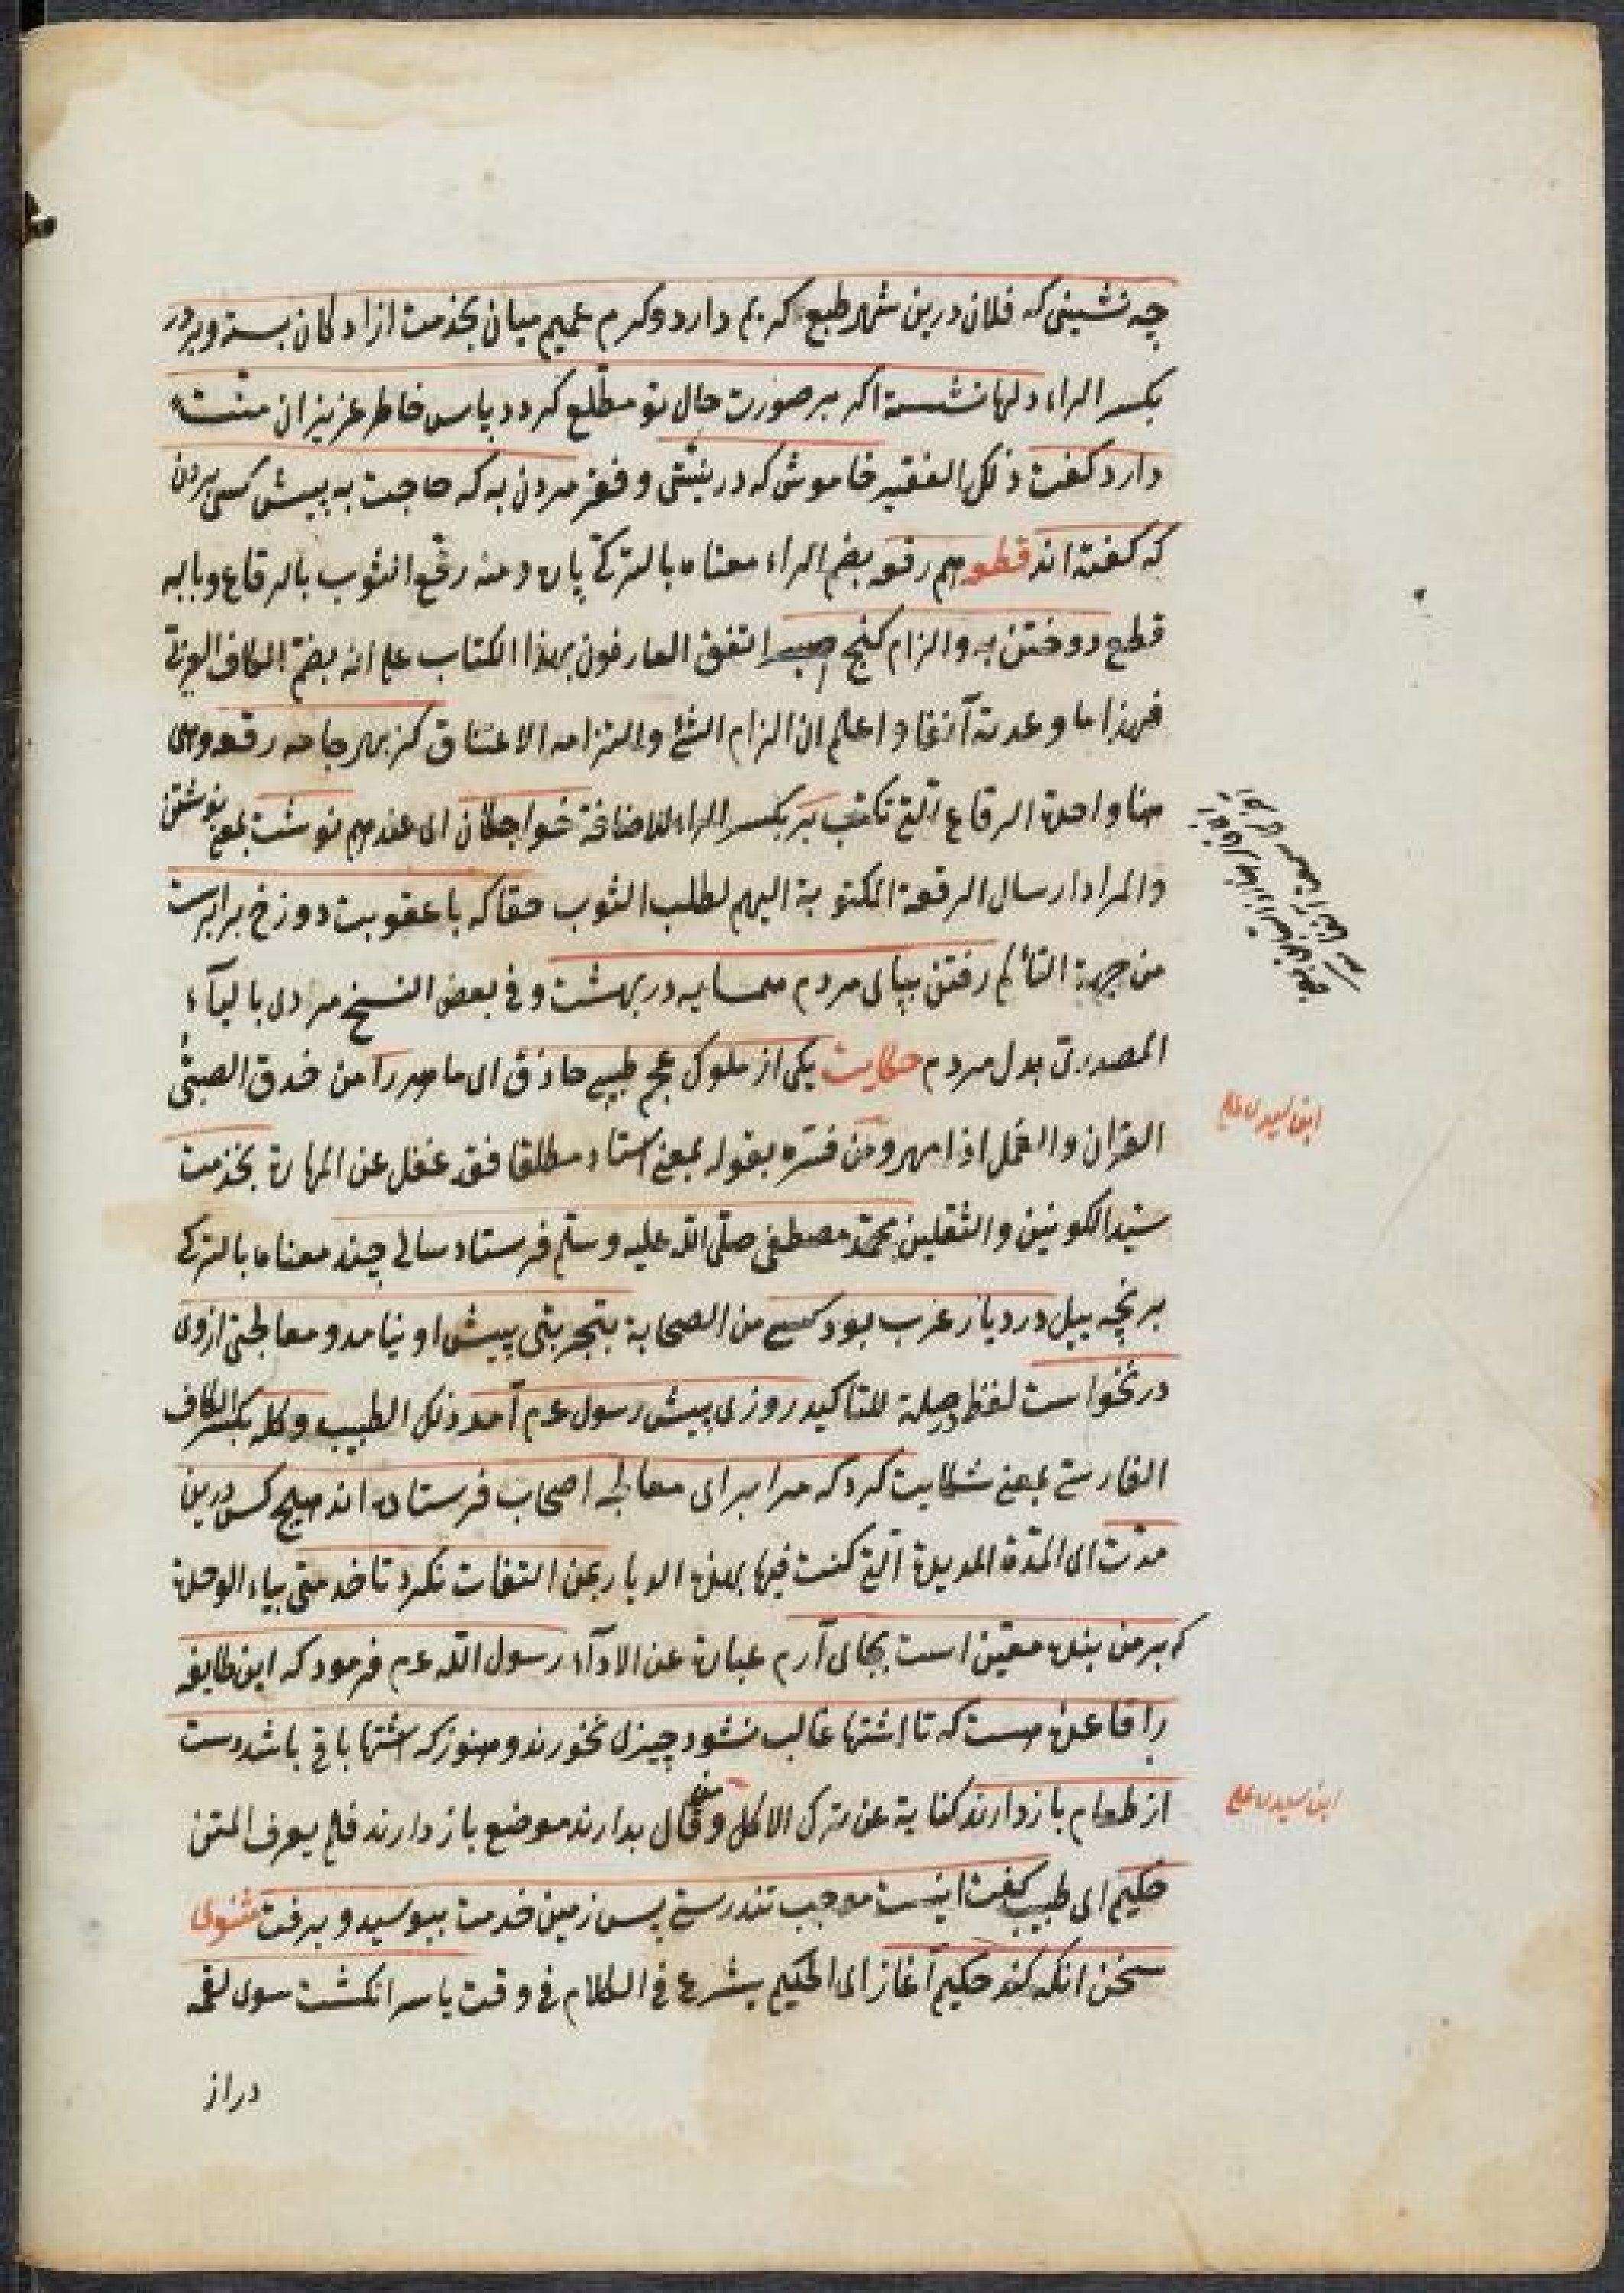 چه نشینی که فلان درین شهر طبع کریم دارد وکرم عمیم میان بخدمت ازادکان بسته وبر در
بکسر الراء دلها نشسته اکر بر صورت حال تو مطلع کردد پاس خاطر عزیزان منت
دارد کفت ذلک الفقیر خاموش که در نیستی وفقر مردن به که حاجت به پیش کسی بردن
که کفته اند قطعه هم رقعه بضم الراء معناه بالترکی پاره ومنه رقع الثوب بالرقاع وبابه
قطع دوختن به والزام کنج صبر اتفق العارفون بهذا الکتاب علی انه بضم الکاف العربی
فهذا ما وعدته آنفا واعلم ان الزام الشئ والتزامه الاعتناق کز بهر جامه رقعه وهی
هنا واحدة الرقاع التی تکتب بر بکسر الراء للاضافة خواجکان ای عندهم نوشت بمعنی نوشتن
والمراد ارسال الرقعة المکتوبة الیهم لطلب الثوب حقا که با عقوبت دوزخ برابرست
من جهة التألم رفتن بپای مردم همسایه در بهشت وفی بعض النسخ مردی بالیاء
المصدری بدل مردم حکایت یکی از ملوک عجم طبیبی حاذق ای ماهر را من حذق الصبی
القران والعمل اذا مهر ومن فسره بقوله بمعنی استاد مطلقا فقد غفل عن المهارة بخدمت
سید الکونین والثقلین محمد مصطفی صلی الله علیه وسلم فرستاد سالی چند معناه بالترکی
بر نچه ییل در دیار عرب بود کسی من الصحابة بتجربتی پیش او نیامد ومعالجتی ازوی
در نخواست لفظ در صلة للتاکید روزی پیش رسول عم آمد ذلک الطبیب وکله بکسر الکاف
الفارسی بمعنی شکایت کرد که مرا برای معالجه اصحاب فرستاده اند هیچ کس درین
مدت ای المدة المدیدة التی کنت فیها بهذه الدیار بمن التفات نکرد تا خدمتی بیاء الوحدة
که بر من بنده معین است بجای آرم عبارة عن الاداء رسول الله عم فرمود که این طایفه
را قاعده هست که تا اشتها غالب نشود چیزی نخورند وهنوز که اشتها باقی باشد دست
از طعام باز دارند کنایة عن ترک الاکل ومن قال بدارند موضع باز دارند فلم یعرف المتن
حکیم ای طبیب کفت اینست موجب تندرستی پس زمین خدمت ببوسید وبرفت مثنوی
سخن انکه کند حکیم آغاز ای الحکیم یشرع فی الکلام فی وقت یا سر انکشت سوی لقمه
دراز
ابن سیدی علی
ابن سیدی علی